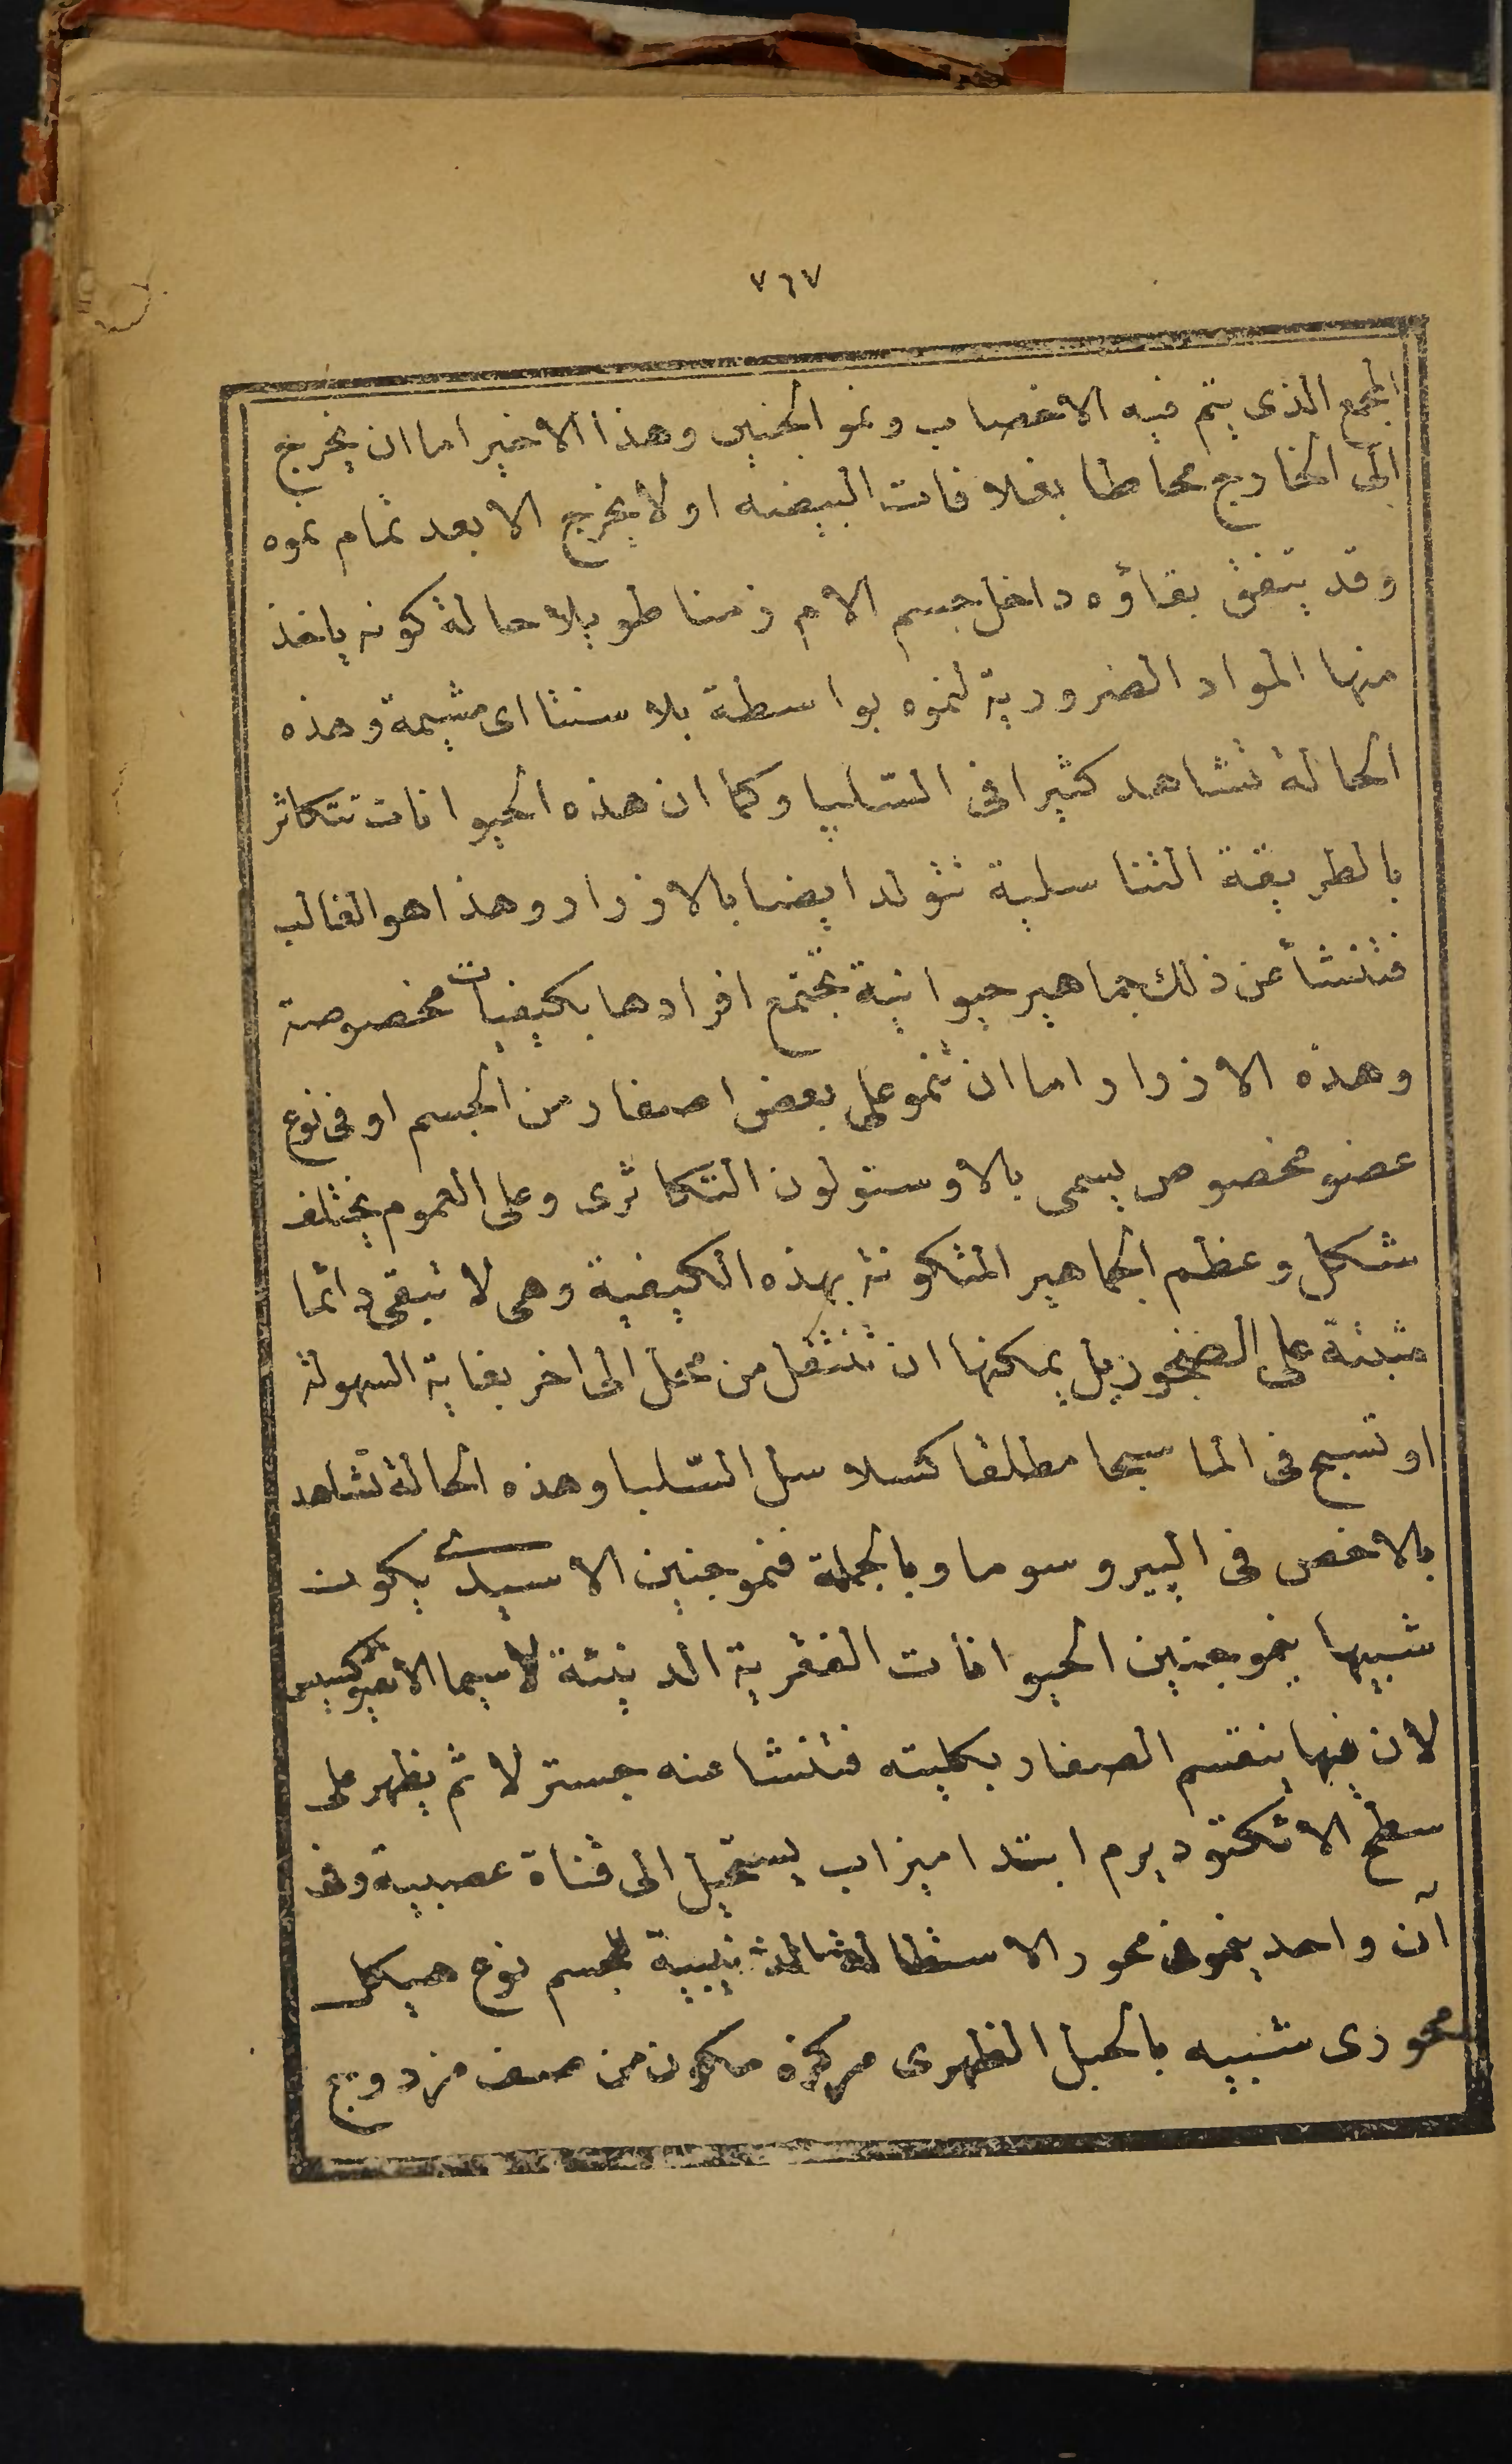 ٧٦٧
المجمع الذى يتم فيه الاخصاب ونمو الجنين وهذا الاخير اما ان يخرج
الى الخارج محاطا بغلافات البيضه او لا يخرج الا بعد تمام نموه
وقد يتفق بقاؤه داخل جسم الام زمنا طويلا حالة كونه ياخذ
منها المواد الضرورية لنموه بواسطة بلاسنتا اى مشيمة وهذه
الحالة تشاهد كثيرا فى السّلپا وكما ان هذه الحيوانات تتكاثر
بالطريقة التناسلية تتولد ايضا بالازرار وهذا هو الغالب
فتنشأ عن ذلك جماهير حيوانية تجتمع افرادها بكيفيات مخصوصة
وهذه الازرار اما ان تنمو على بعض اصفار من الجسم او فى نوع
عضو مخصوص يسمى بالاوستولون التكاثرى وعلى العموم يختلف
شكل وعظم الجماهير المتكونة بهذه الكيفية وهى لا تبقى دائما
مثبتة على الصخور بل يمكنها ان تنتقل من محل الى اخر بغاية السهولة
او تسبح فى الما سبحا مطلقا كسلاسل السّلپا وهذه الحالة تشاهد
بالاخص فى الپيروسوما وبالجملة فنمو جنين الاسيدى يكون
شبيها بنمو جنين الحيوانات الفقرية الدنيئة لاسيما الانفيوكسيس
لان فيها ينقسم الصفار بكليته فتنشا عنه جسترلا ثم يظهر على
سطح الاكتوديرم ابتدا ميزاب يستحيل الى قناة عصبية وفى
آن واحد ينمو فى محور الاستطالة الذنيبية للجسم نوع هيكل
محورى شبيه بالحبل الظهرى مركزه مكون من صف مزدوج